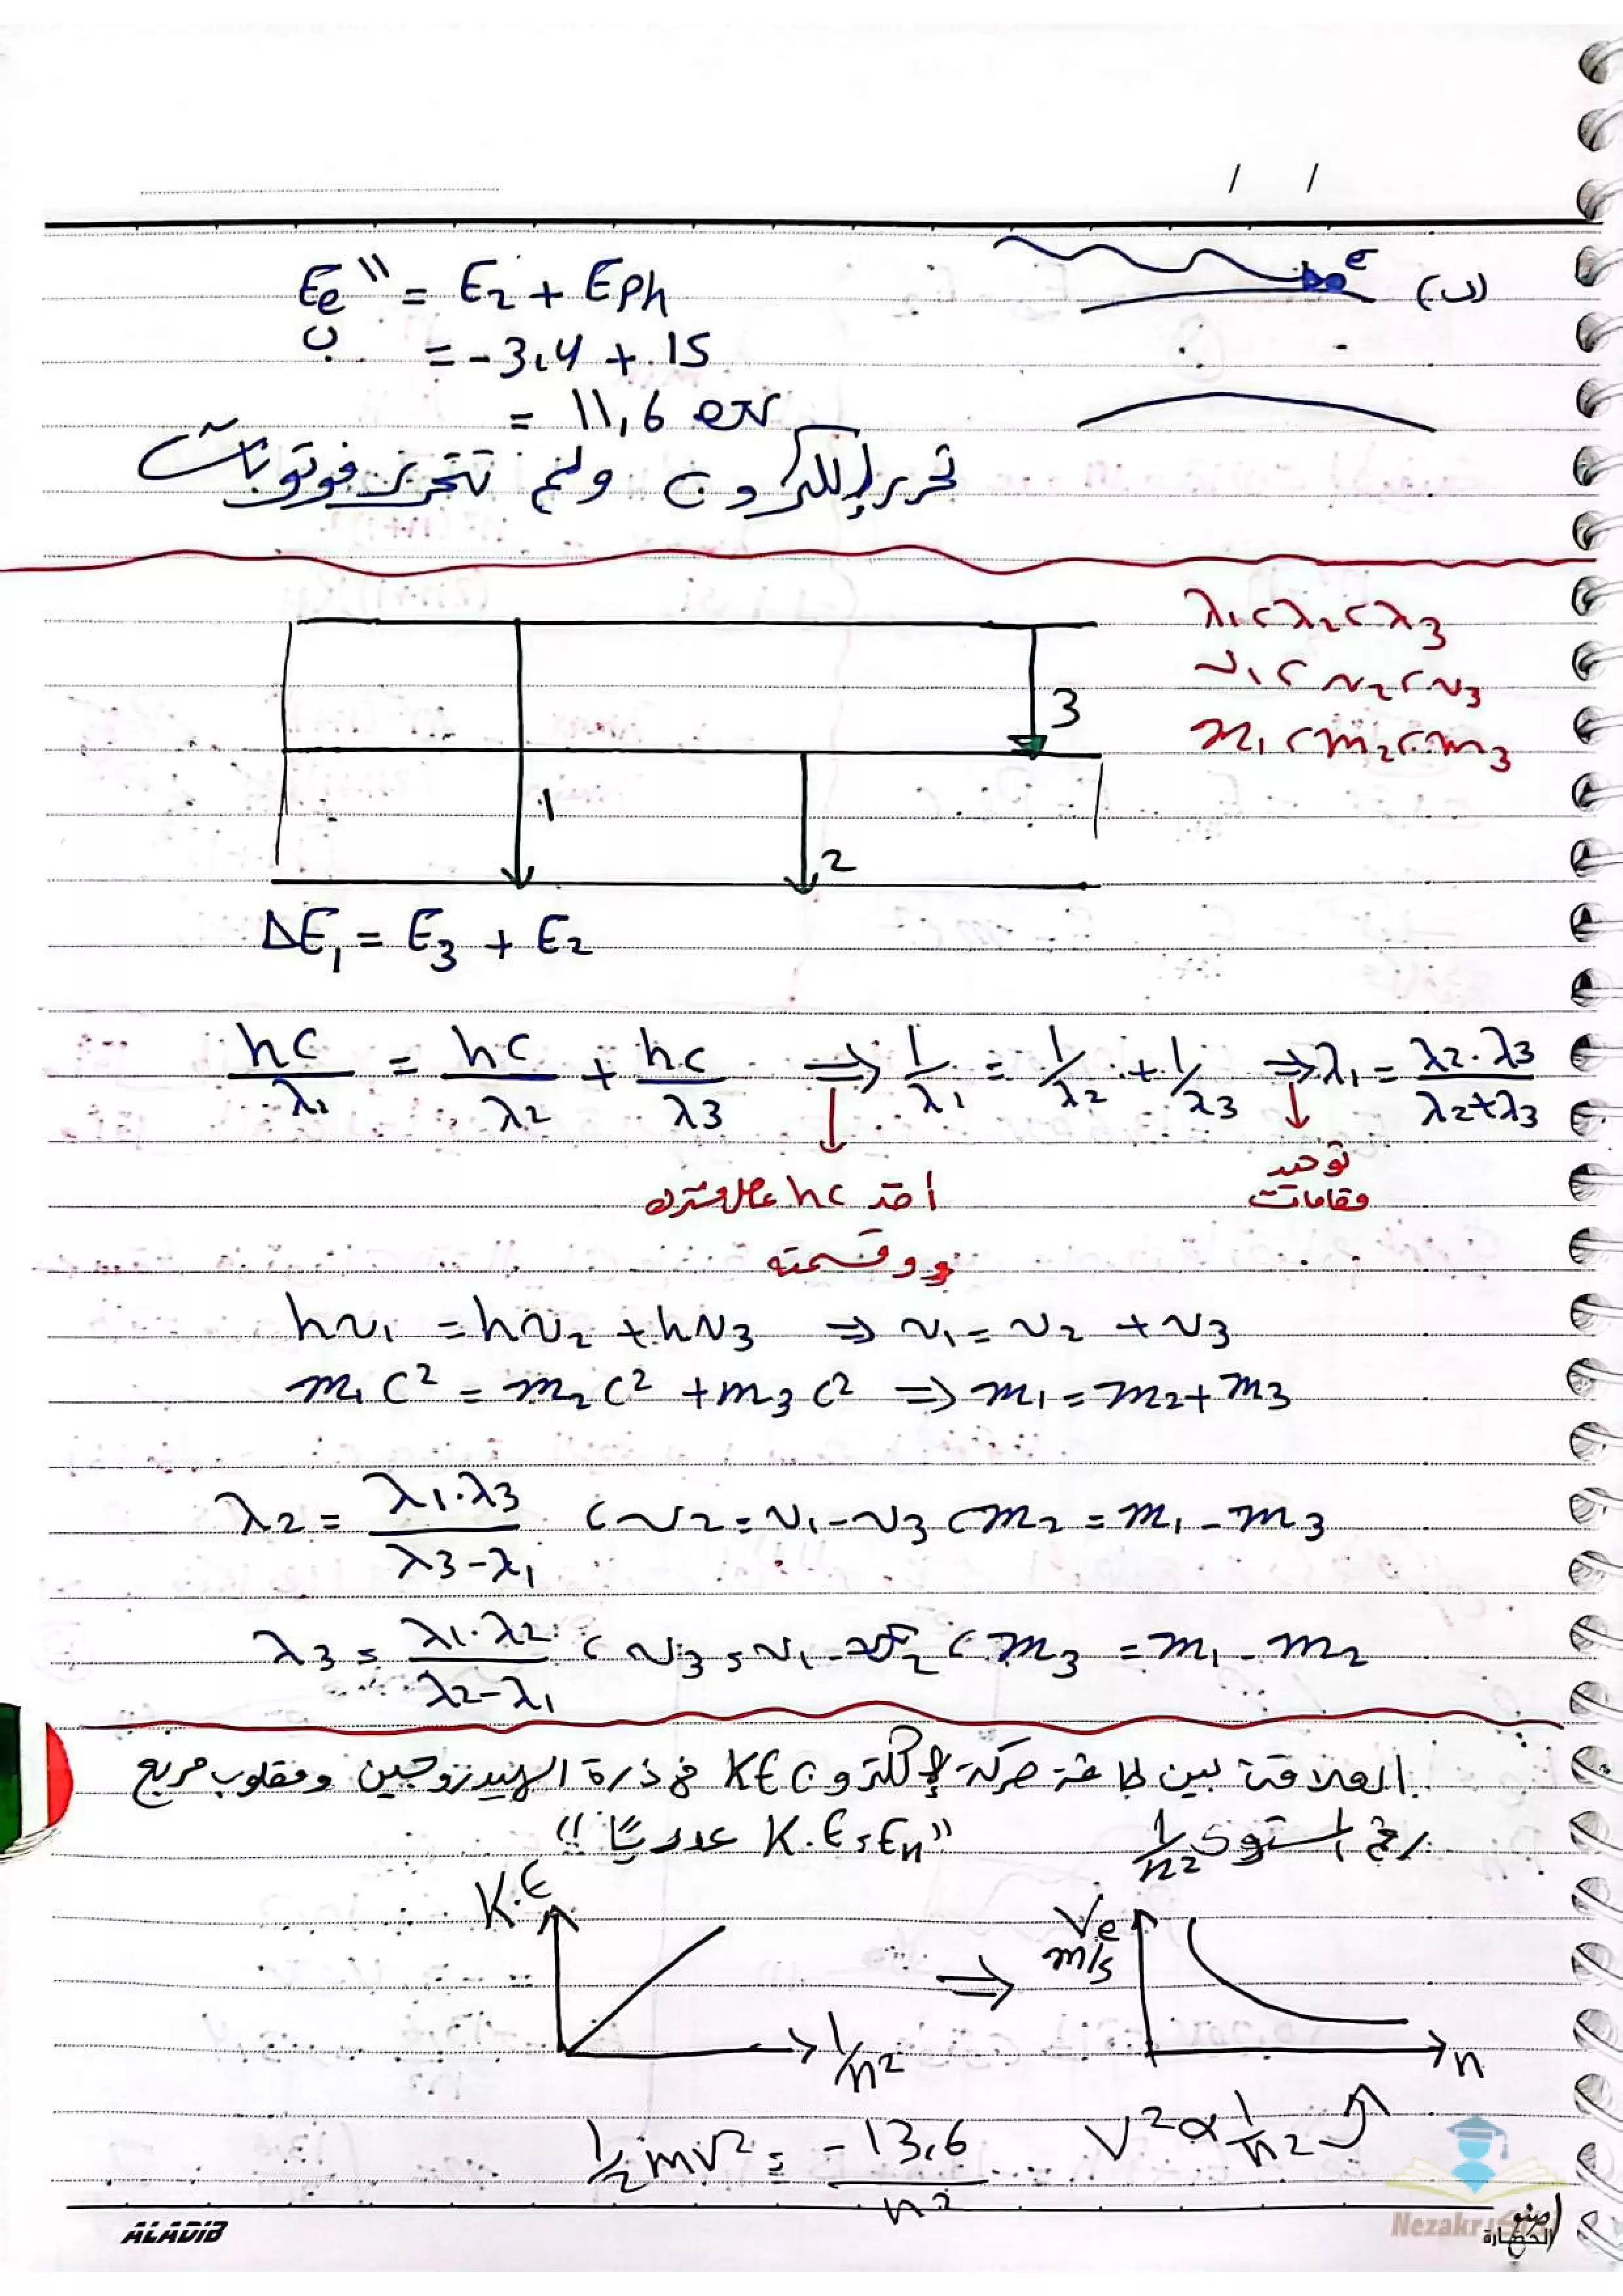 / /
(ب) e⁻
E̅e'' = E₂ + Eph
= -3,4 + 15
= 11,6 eV
تحرر إلكترون ولم تتحرر فوتونات
λ₁ ، λ₂ ، λ₃
ν₁ ، ν₂ ، ν₃
m₁ ، m₂ ، m₃
3
1
2
ΔE₁ = E₃ + E₂
hc/λ₁ = hc/λ₂ + hc/λ₃ ⇒ 1/λ₁ = 1/λ₂ + 1/λ₃ ⇒ λ₁ = λ₂.λ₃/λ₂+λ₃
اخد hc عامل مشترك
توحيد
مقامات
وقسمته
hν₁ = hν₂ + hν₃ ⇒ ν₁ = ν₂ + ν₃
m₁c² = m₂c² + m₃c² ⇒ m₁ = m₂ + m₃
λ₂ = λ₁.λ₃/λ₃-λ₁ ، ν₂ = ν₁-ν₃ ، m₂ = m₁ - m₃
λ₃ = λ₁.λ₂/λ₂-λ₁ ، ν₃ = ν₁-ν₂ ، m₃ = m₁ - m₂
العلاقة بين طاقة حركة الإلكترون KE في ذرة الهيدروجين ومقلوب مربع
رقم المستوى 1/n² "K.E = En عدديًا"
K.E
1/n²
⇒
Ve
m/s
n
½mv² = -13,6/n²
V² α 1/n²
ALADIB
Nezakr
اصنع
الحضارة